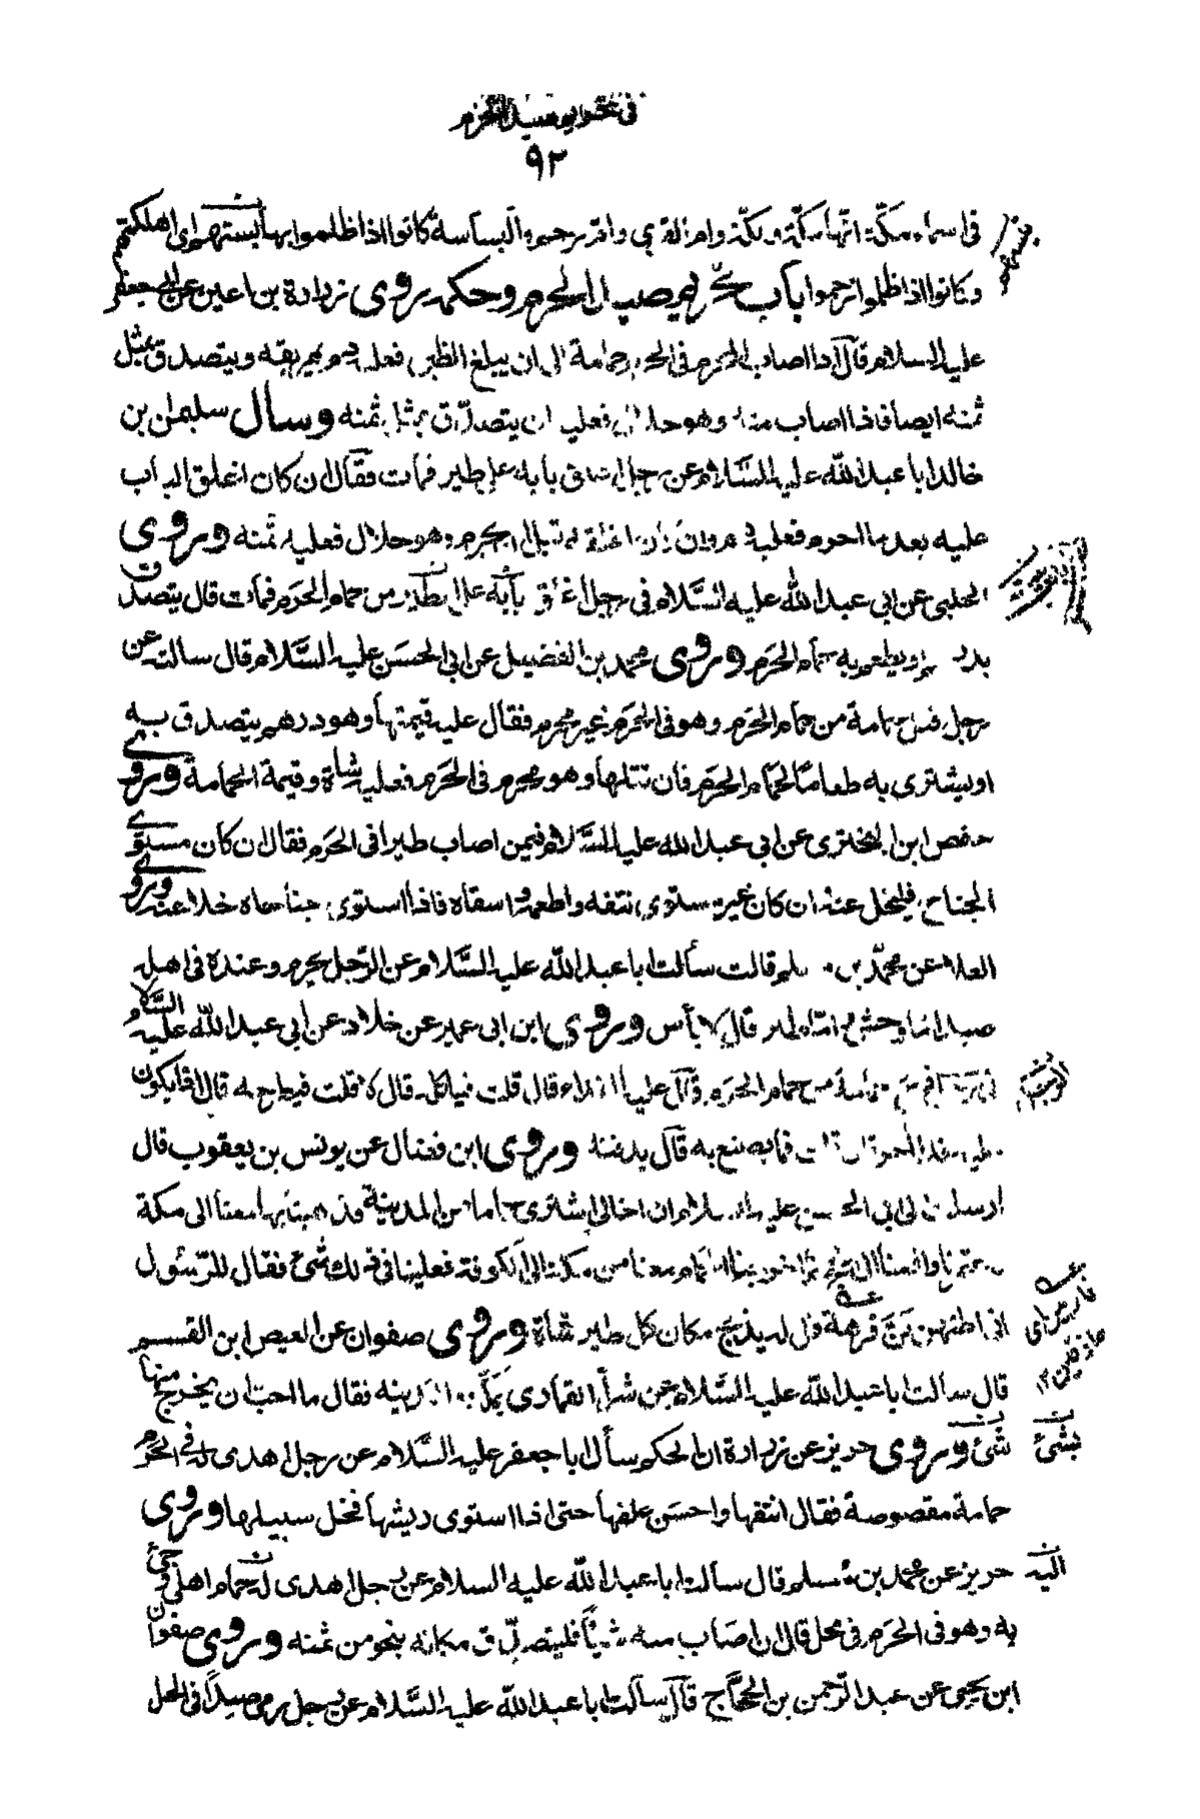 في تحريم صيد الحرم
٩٢
في اسماء مكة انها مكة وبكة وام القرى وام رحم والبساسة كانوا اذا ظلموا بها بستهم اي اهلكتهم
وكانوا اذا ظلموا رحموا باب تحريم صيد الحرم وحكمه وروى زرارة بن اعين عن ابي جعفر
عليه السلام قال اذا اصاب المحرم في الحرم حمامة الى ان يبلغ الظبي فعليه دم يهريقه ويتصدق بمثل
ثمنه ايضا فاذا اصاب منه وهو حلال فعليه ان يتصدق بمثل ثمنه وسأل سليمان بن
خالد ابا عبد الله عليه السلام عن رجل اغلق بابه على طير فمات فقال ان كان اغلق الباب
عليه بعد ما احرم فعليه دم وان كان اغلقه قبل ان يحرم وهو حلال فعليه ثمنه وروى
الحلبي عن ابي عبد الله عليه السلام في رجل اغلق بابه على طير من حمام الحرم فمات قال يتصدق
بدرهم او يطعم به حمام الحرم وروى محمد بن الفضيل عن ابي الحسن عليه السلام قال سالته عن
رجل قتل حمامة من حمام الحرم وهو في الحرم غير محرم فقال عليه قيمتها وهو درهم يتصدق به
او يشترى به طعاما لحمام الحرم فان قتلها وهو محرم في الحرم فعليه شاة وقيمة الحمامة وروى
حفص ابن البختري عن ابي عبد الله عليه السلام فيمن اصاب طيرا في الحرم فقال ان كان مستوى
الجناح فليخل عنه ان كان غير مستوى نتفه واطعمه واسقاه فاذا استوى جناحاه خلا عنه وروى
العلا عن محمد بن مسلم قالت سألت ابا عبد الله عليه السلام عن الرجل يحرم وعنده في اهله
صيد اما وحش واما طير قال لا بأس وروى ابن ابي عمير عن خلاد عن ابي عبد الله عليه السلام
في رجل ذبح حمامة من حمام الحرم قال عليه الفداء قال قلت فياكله قال لا قلت فيطرحه قال اذا يكون
عليه فداء اخر قلت فما يصنع به قال يدفنه وروى ابن فضال عن يونس بن يعقوب قال
ارسلت الى ابي الحسن عليه السلام ان اخا لي اشترى حماما من المدينة فذهبنا بها معنا الى مكة
فاعتمرنا واقمنا الى الحج ثم اخرجنا الحمام معنا من مكة الى الكوفة فعلينا في ذلك شئ فقال للرسول
اني اظنهن كن فرهة قل له يذبح مكان كل طير شاة وروى صفوان عن العيص ابن القسم
قال سالت ابا عبد الله عليه السلام عن شراء القماري بمكة والمدينه فقال ما احب ان يخرج منها
شئ وروى حريز عن زرارة ان الحكم سأل ابا جعفر عليه السلام عن رجل اهدى له في الحرم
حمامة مقصوصة فقال انتفها واحسن علفها حتى اذا استوى ريشها فخل سبيلها وروى
حريز عن محمد بن مسلم قال سالت ابا عبد الله عليه السلام عن رجل اهدى له حمام اهلي جئ
به وهو في الحرم في محل قال ان اصاب منه شيئا فليتصدق مكانه بنحو من ثمنه وروى صفوان
ابن يحيى عن عبد الرحمن بن الحجاج قال سالت ابا عبد الله عليه السلام عن رجل رمى صيدا في الحل
بشئ
اليه